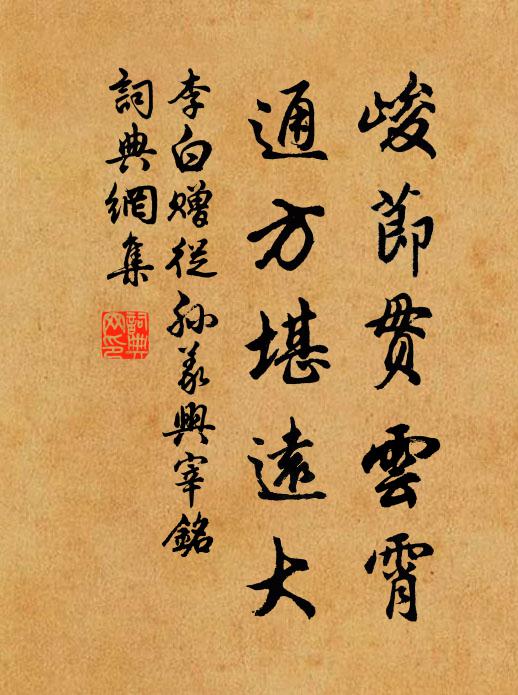 峻節貫雲霄
通方堪遠大
李白贈從孫義興宰銘
詞典網集
詞典
网印